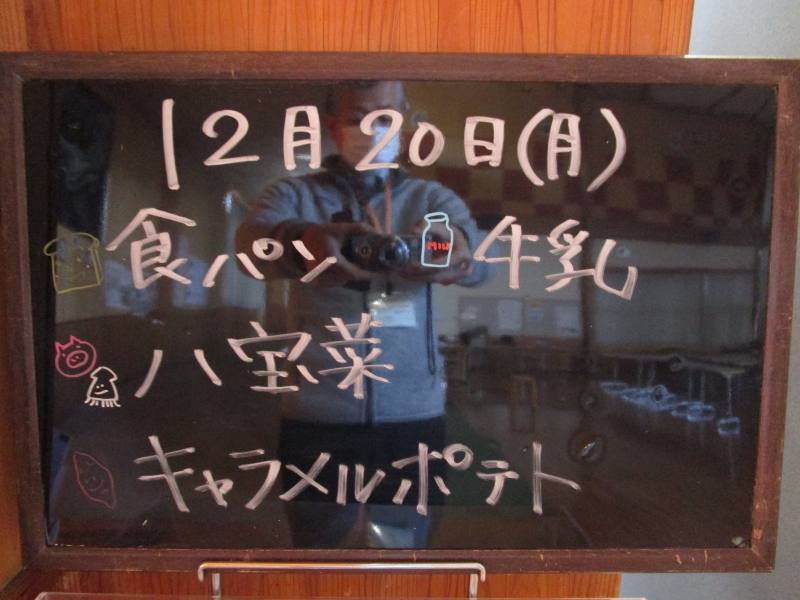 12月20日(月)
食パン MILK 牛乳
八宝菜
キャラメルポテト